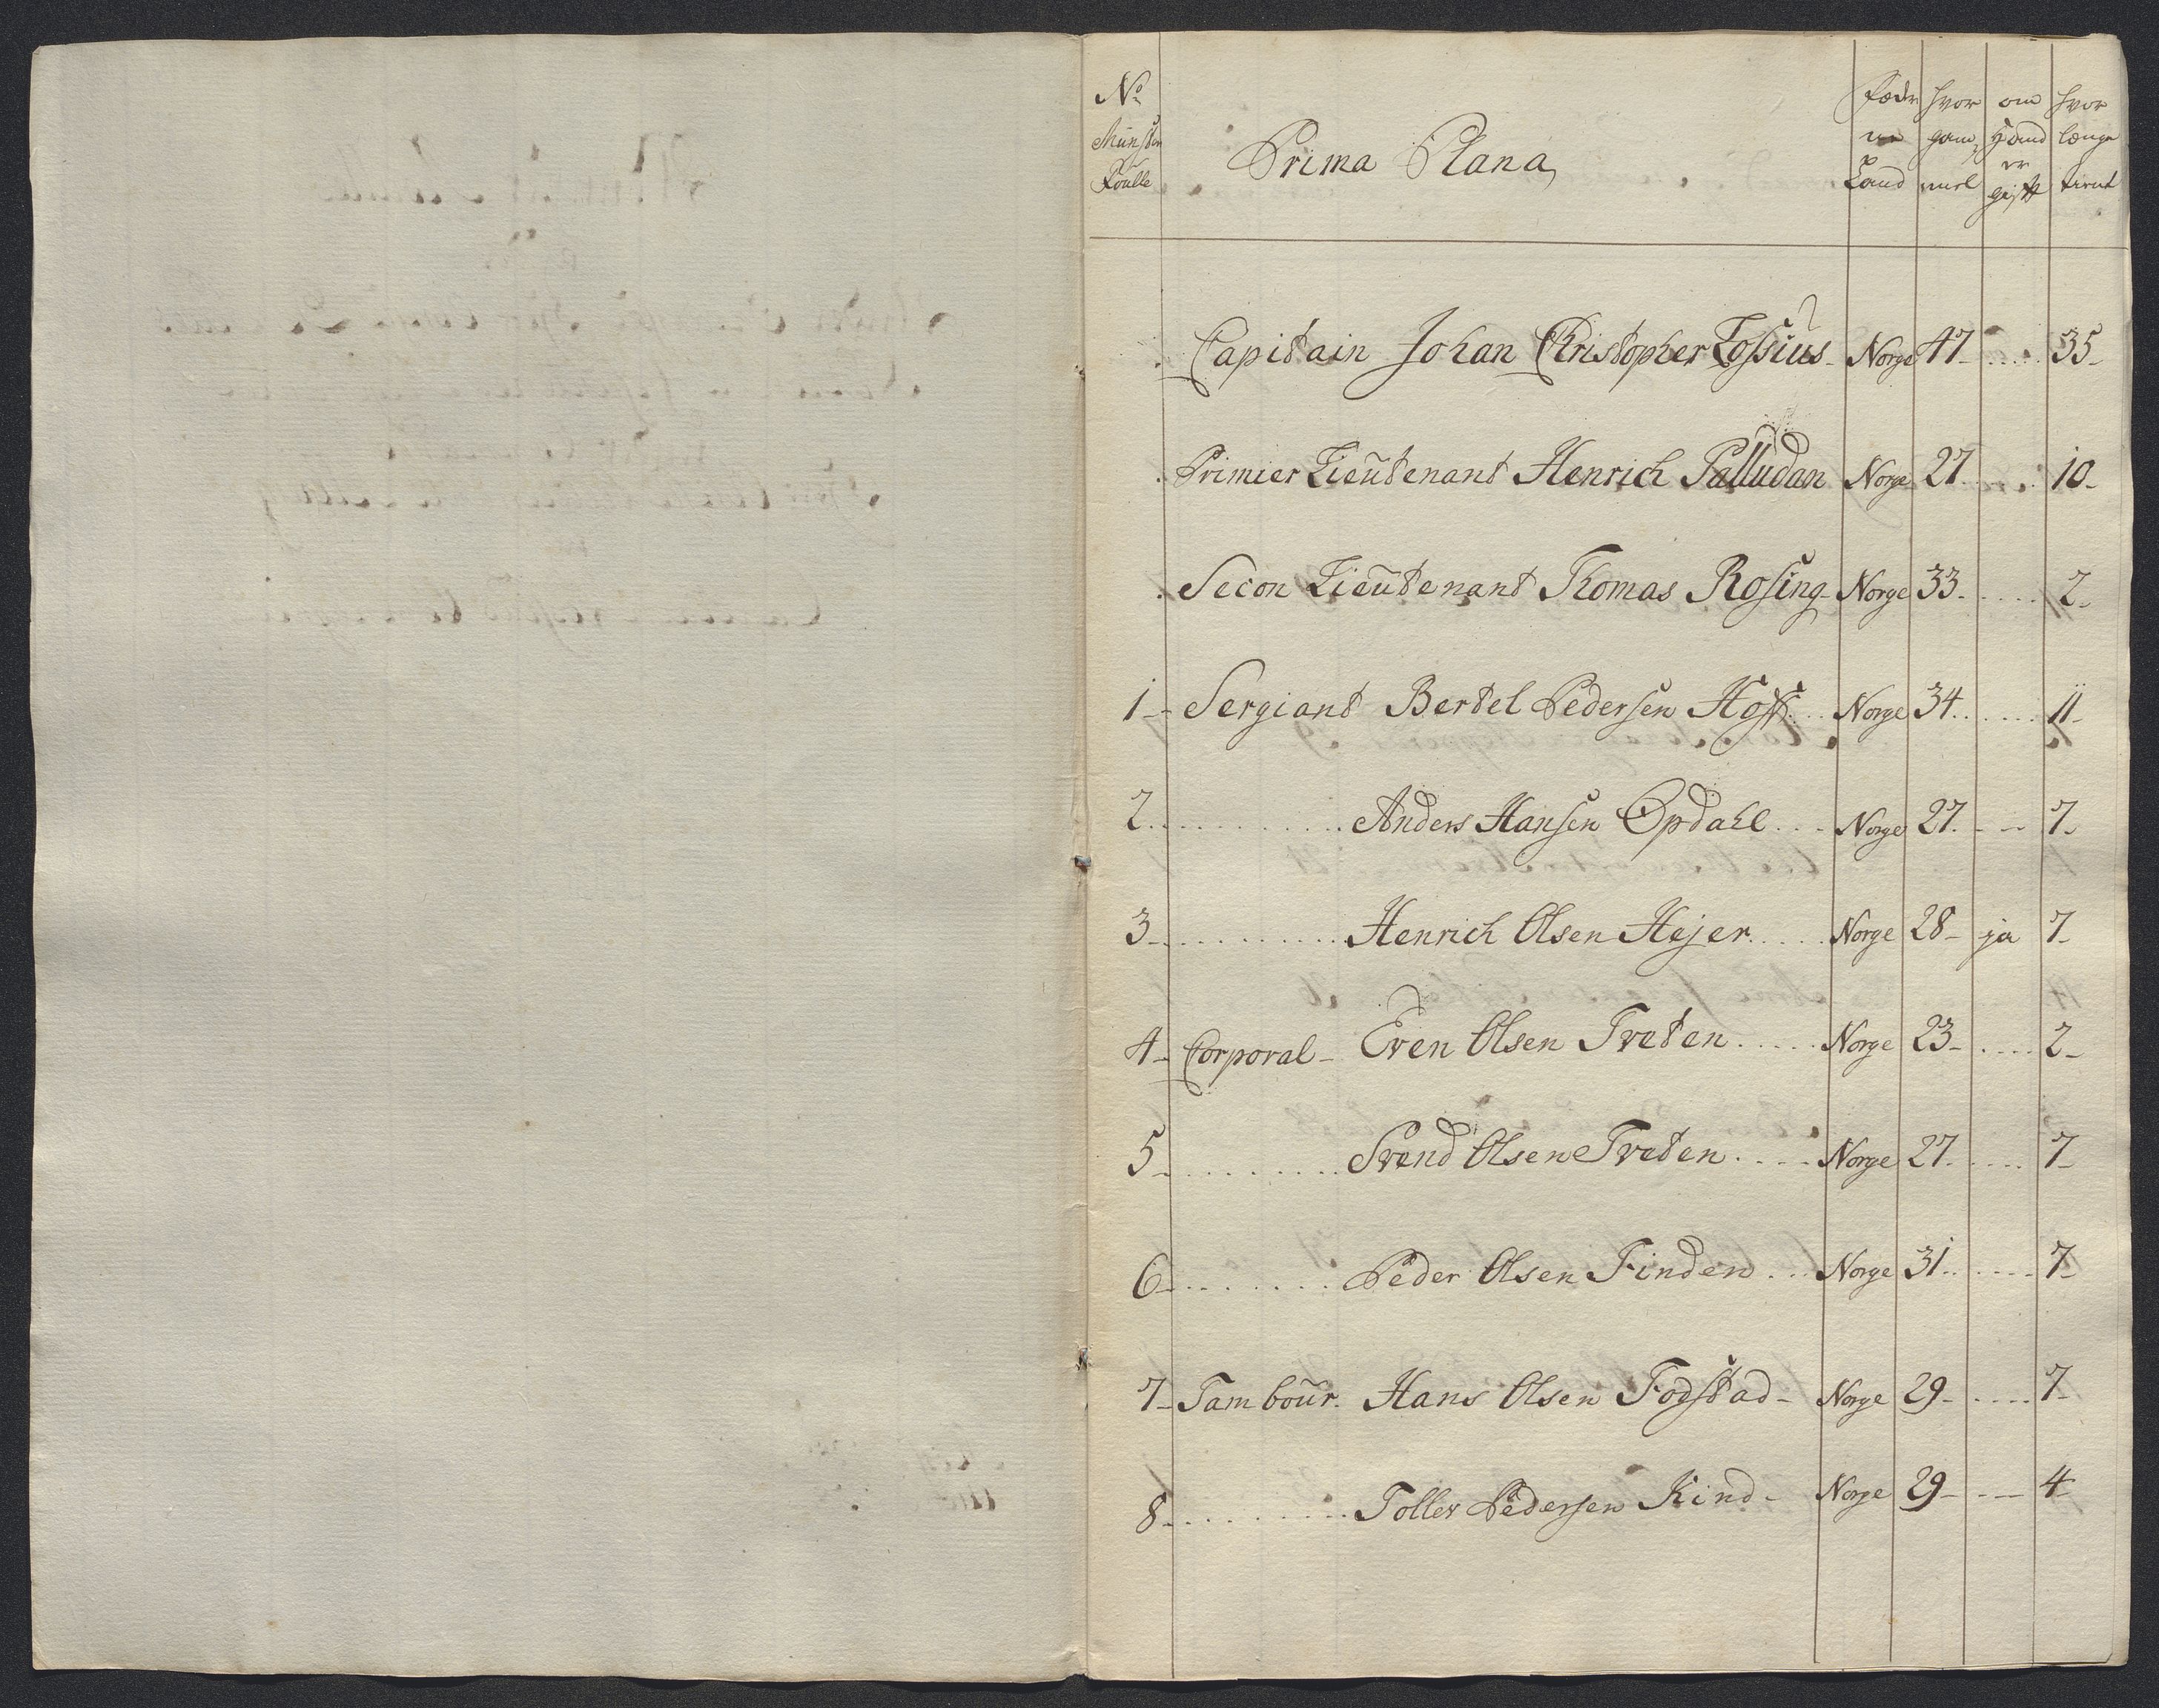 No
Munster
Roulle
Prima Plana,
Føde
Land
hvor
gam,
mel
om
Hand
er
gift
hvor
længe
tient
Capitain Johan Christopher Lossius Norge 47 35
Primier Lieutenant Henrich Palludan Norge 27 10
Secon Lieutenant Thomas Rosing Norge 33 2
1 Sergiant Bertel Pedersen Hoff Norge 34 11
2 Anders Hansen Opdahl Norge 27 7
3 Henrich Olsen Hejer Norge 28 ja 7
4 Corporal Even Olsen Treten Norge 23 2
5 Svend Olsen Treten Norge 27 7
6 Peder Olsen Finden Norge 31 7
7 Tambour Hans Olsen Fodstad Norge 29 7
8 Toller Pedersen Kind Norge 29 4